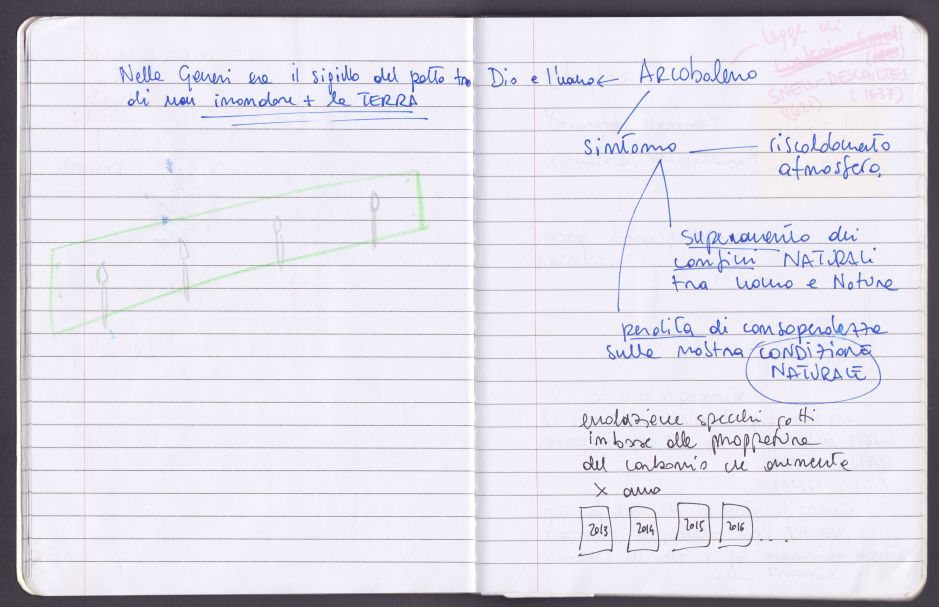 Nella Genesi era il sigillo del patto tra Dio e l'uomo ← ARCObaleno
di non inondare + la TERRA
leggi di
SNELL-DESCARTES
(1621) (1637)
sintomo — riscaldamento
atmosfera.
superamento dei
confini NATURALI
tra uomo e Natura
perdita di consapevolezza
sulla nostra CONDIZIONE
NATURALE
specchi rotti
in base alle
del carbonio che aumenta
x anno
2013 2014 2015 2016 ....